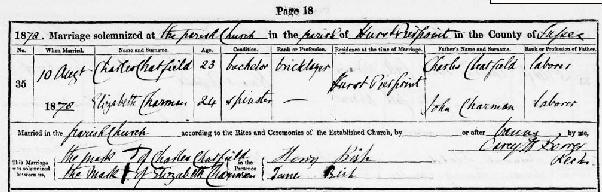 Page 18
1870. Marriage solemnized at the parish Church in the parish of Hurstpierpoint in the County of Sussex
No. When Married. Name and Surname. Age. Condition. Rank or Profession. Residence at the time of Marriage. Father's Name and Surname. Rank or Profession of Father.
35 10 Augt Charles Chatfield 23 bachelor bricklayer Hurst Pierpoint Charles Chatfield laborer
1870 Elizabeth Charman 24 spinster — John Charman laborer
Married in the parish Church according to the Rites and Ceremonies of the Established Church, by or after banns by me,
This Marriage was solemnized between us, the mark of Charles Chatfield in the Presence of us, Henry Bish
the mark of Elizabeth Charman Jane Bish